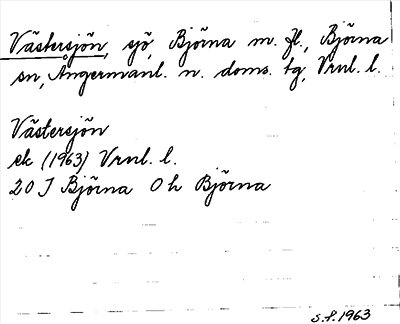 Västersjön, sjö, Björna m. fl., Björna
sn, Ångermanl. n. doms. tg, Vrnl. l.
Västersjön
ek (1963) Vrnl. l.
20 J Björna O h Björna
S.f. 1963